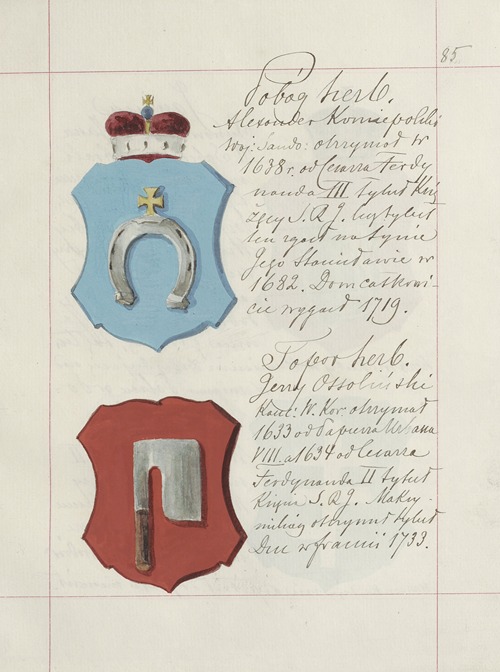 85
Pobóg herb.
Alexander Koniecpolski
Woj: Sando: otrzymał w
1638 r. od Cesarza Ferdy
nanda III tytuł Xią
żęcy S. R. J. lecz tytuł
ten zgasł na synie
Jego Stanisławie w
1682. Dom całkowi-
cie wygasł 1719.
Topor herb.
Jerzy Ossoliński
Kanc: W. Kor. otrzymał
1633 od Papieża Urbana
VIII. a 1634 od Cesarza
Ferdynanda II tytuł
Xięcia S. R. J. Maksy-
milian otrzymał tytuł
Duc w francii 1733.